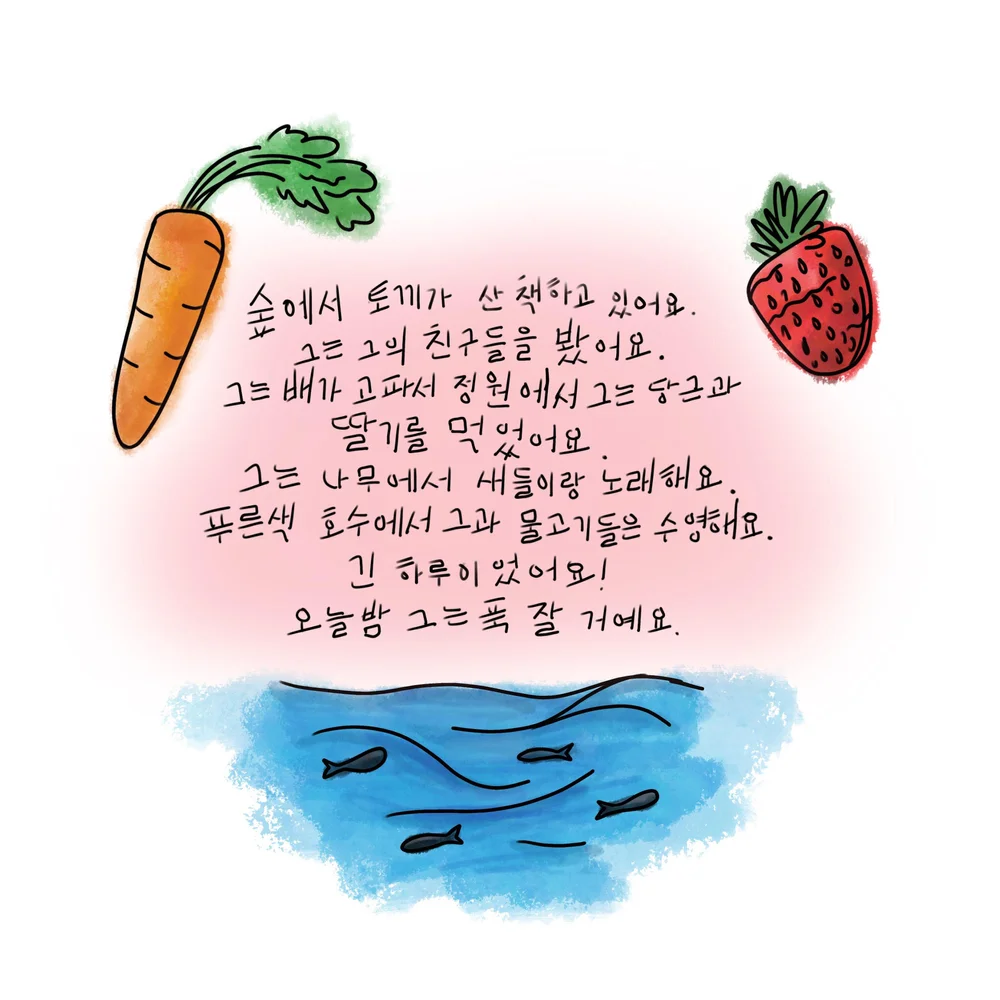 숲에서 토끼가 산책하고 있어요.
그는 그의 친구들을 봤어요.
그는 배가 고파서 정원에서 그는 당근과
딸기를 먹었어요.
그는 나무에서 새들이랑 노래해요.
푸른색 호수에서 그과 물고기들은 수영해요.
긴 하루이었어요!
오늘밤 그는 푹 잘 거예요.